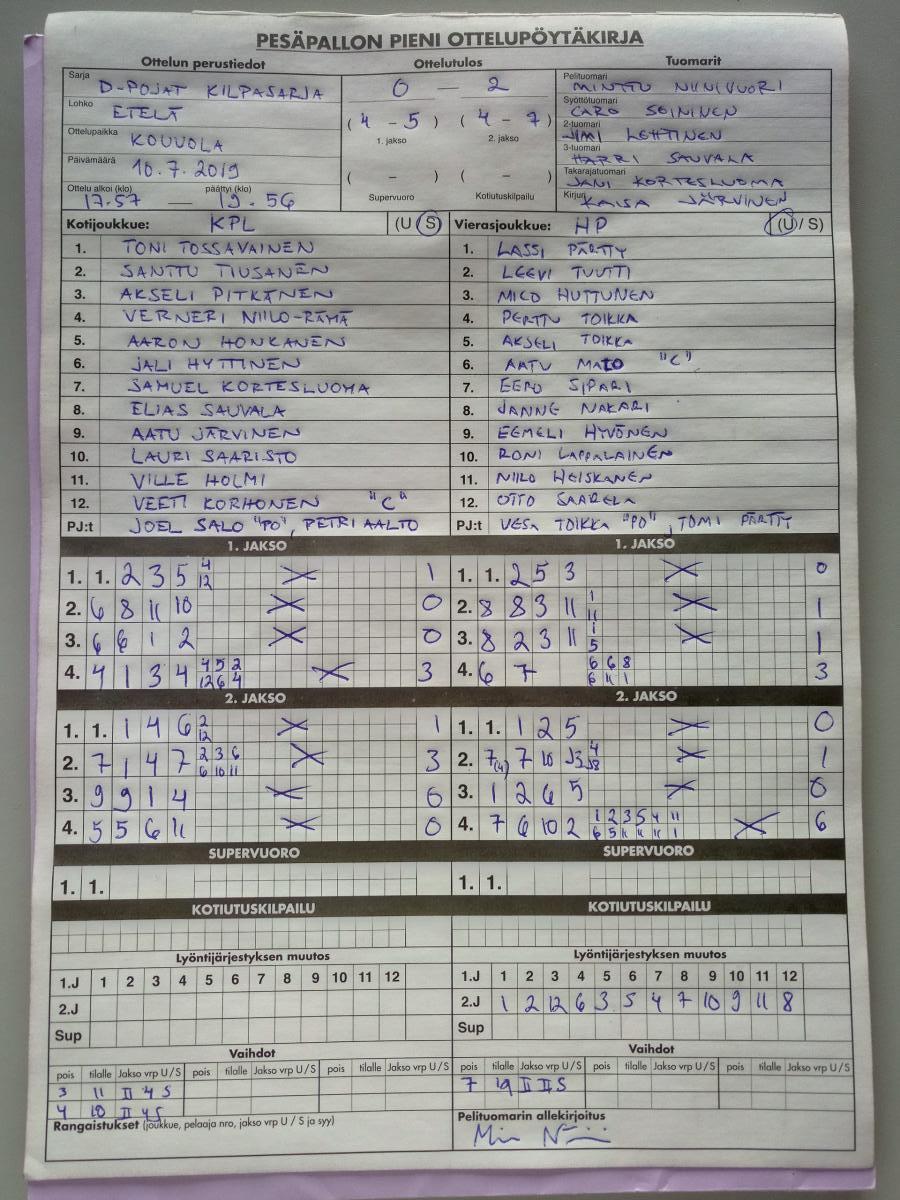 PESÄPALLON PIENI OTTELUPÖYTÄKIRJA
Ottelun perustiedot
Sarja D-POJAT KILPASARJA
Lohko ETELÄ
Ottelupaikka KOUVOLA
Päivämäärä 10.7.2019
Ottelu alkoi (klo) päättyi (klo)
17.57 — 19.56
Ottelutulos
0 — 2
(4 - 5) (4 - 7)
1. jakso 2. jakso
( - ) ( - )
Supervuoro Kotiutuskilpailu
Tuomarit
Pelituomari MINTTU NIINIVUORI
Syöttötuomari CARO SOININEN
2-tuomari JIMI LEHTINEN
3-tuomari HARRI SAUVALA
Takarajatuomari JANI KORTESLUOMA
Kirjuri KAISA JÄRVINEN
Kotijoukkue: KPL (U S)
1. TONI TOSSAVAINEN
2. SANTTU TIUSANEN
3. AKSELI PITKÄNEN
4. VERNERI NIILO-RÄMÄ
5. AARON HONKANEN
6. JALI HYTTINEN
7. SAMUEL KORTESLUOMA
8. ELIAS SAUVALA
9. AATU JÄRVINEN
10. LAURI SAARISTO
11. VILLE HOLMI
12. VEETI KORHONEN "C"
PJ:t JOEL SALO "PO", PETRI AALTO
Vierasjoukkue: HP (U / S)
1. LASSI PÄRTTY
2. LEEVI TUUTTI
3. MICO HUTTUNEN
4. PERTTU TOIKKA
5. AKSELI TOIKKA
6. AATU MATO "C"
7. EERO SIPARI
8. JANNE NAKARI
9. EEMELI HYVÖNEN
10. RONI LAPPALAINEN
11. NIILO HEISKANEN
12. OTTO SAARELA
PJ:t VESA TOIKKA "PO", TOMI PÄRTTY
1. JAKSO
1. 1. 2 3 5 4 1
12
2. 6 8 11 10 0
3. 6 6 1 2 0
4. 4 1 3 4 4 5 2 3
12 6 4
2. JAKSO
1. 1. 1 4 6 2 1
12
2. 7 1 4 7 2 3 6 3
6 10 11
3. 9 9 1 4 0
4. 5 5 6 11 0
SUPERVUORO
1. 1.
KOTIUTUSKILPAILU
1. JAKSO
1. 1. 2 5 3 0
2. 8 8 3 11 1 1
11
3. 8 2 3 11 1 1
5
4. 6 7 6 6 8 3
6 11 1
2. JAKSO
1. 1. 1 2 5 0
2. 7(4) 7 10 4 1
3. 1 2 6 5 0
4. 7 6 10 2 1 2 3 5 4 11 6
6 5 11 11 11 1
SUPERVUORO
1. 1.
KOTIUTUSKILPAILU
Lyöntijärjestyksen muutos
1.J 1 2 3 4 5 6 7 8 9 10 11 12
2.J
Sup
Vaihdot
pois tilalle Jakso vrp U / S pois tilalle Jakso vrp U / S pois tilalle Jakso vrp U / S
3 11 II 4 S
4 10 II 4 S
Rangaistukset (joukkue, pelaaja nro, jakso vrp U / S ja syy)
Lyöntijärjestyksen muutos
1.J 1 2 3 4 5 6 7 8 9 10 11 12
2.J 1 2 12 6 3 5 4 7 10 9 11 8
Sup
Vaihdot
pois tilalle Jakso vrp U / S pois tilalle Jakso vrp U / S pois tilalle Jakso vrp U / S
7 II II S
Pelituomarin allekirjoitus